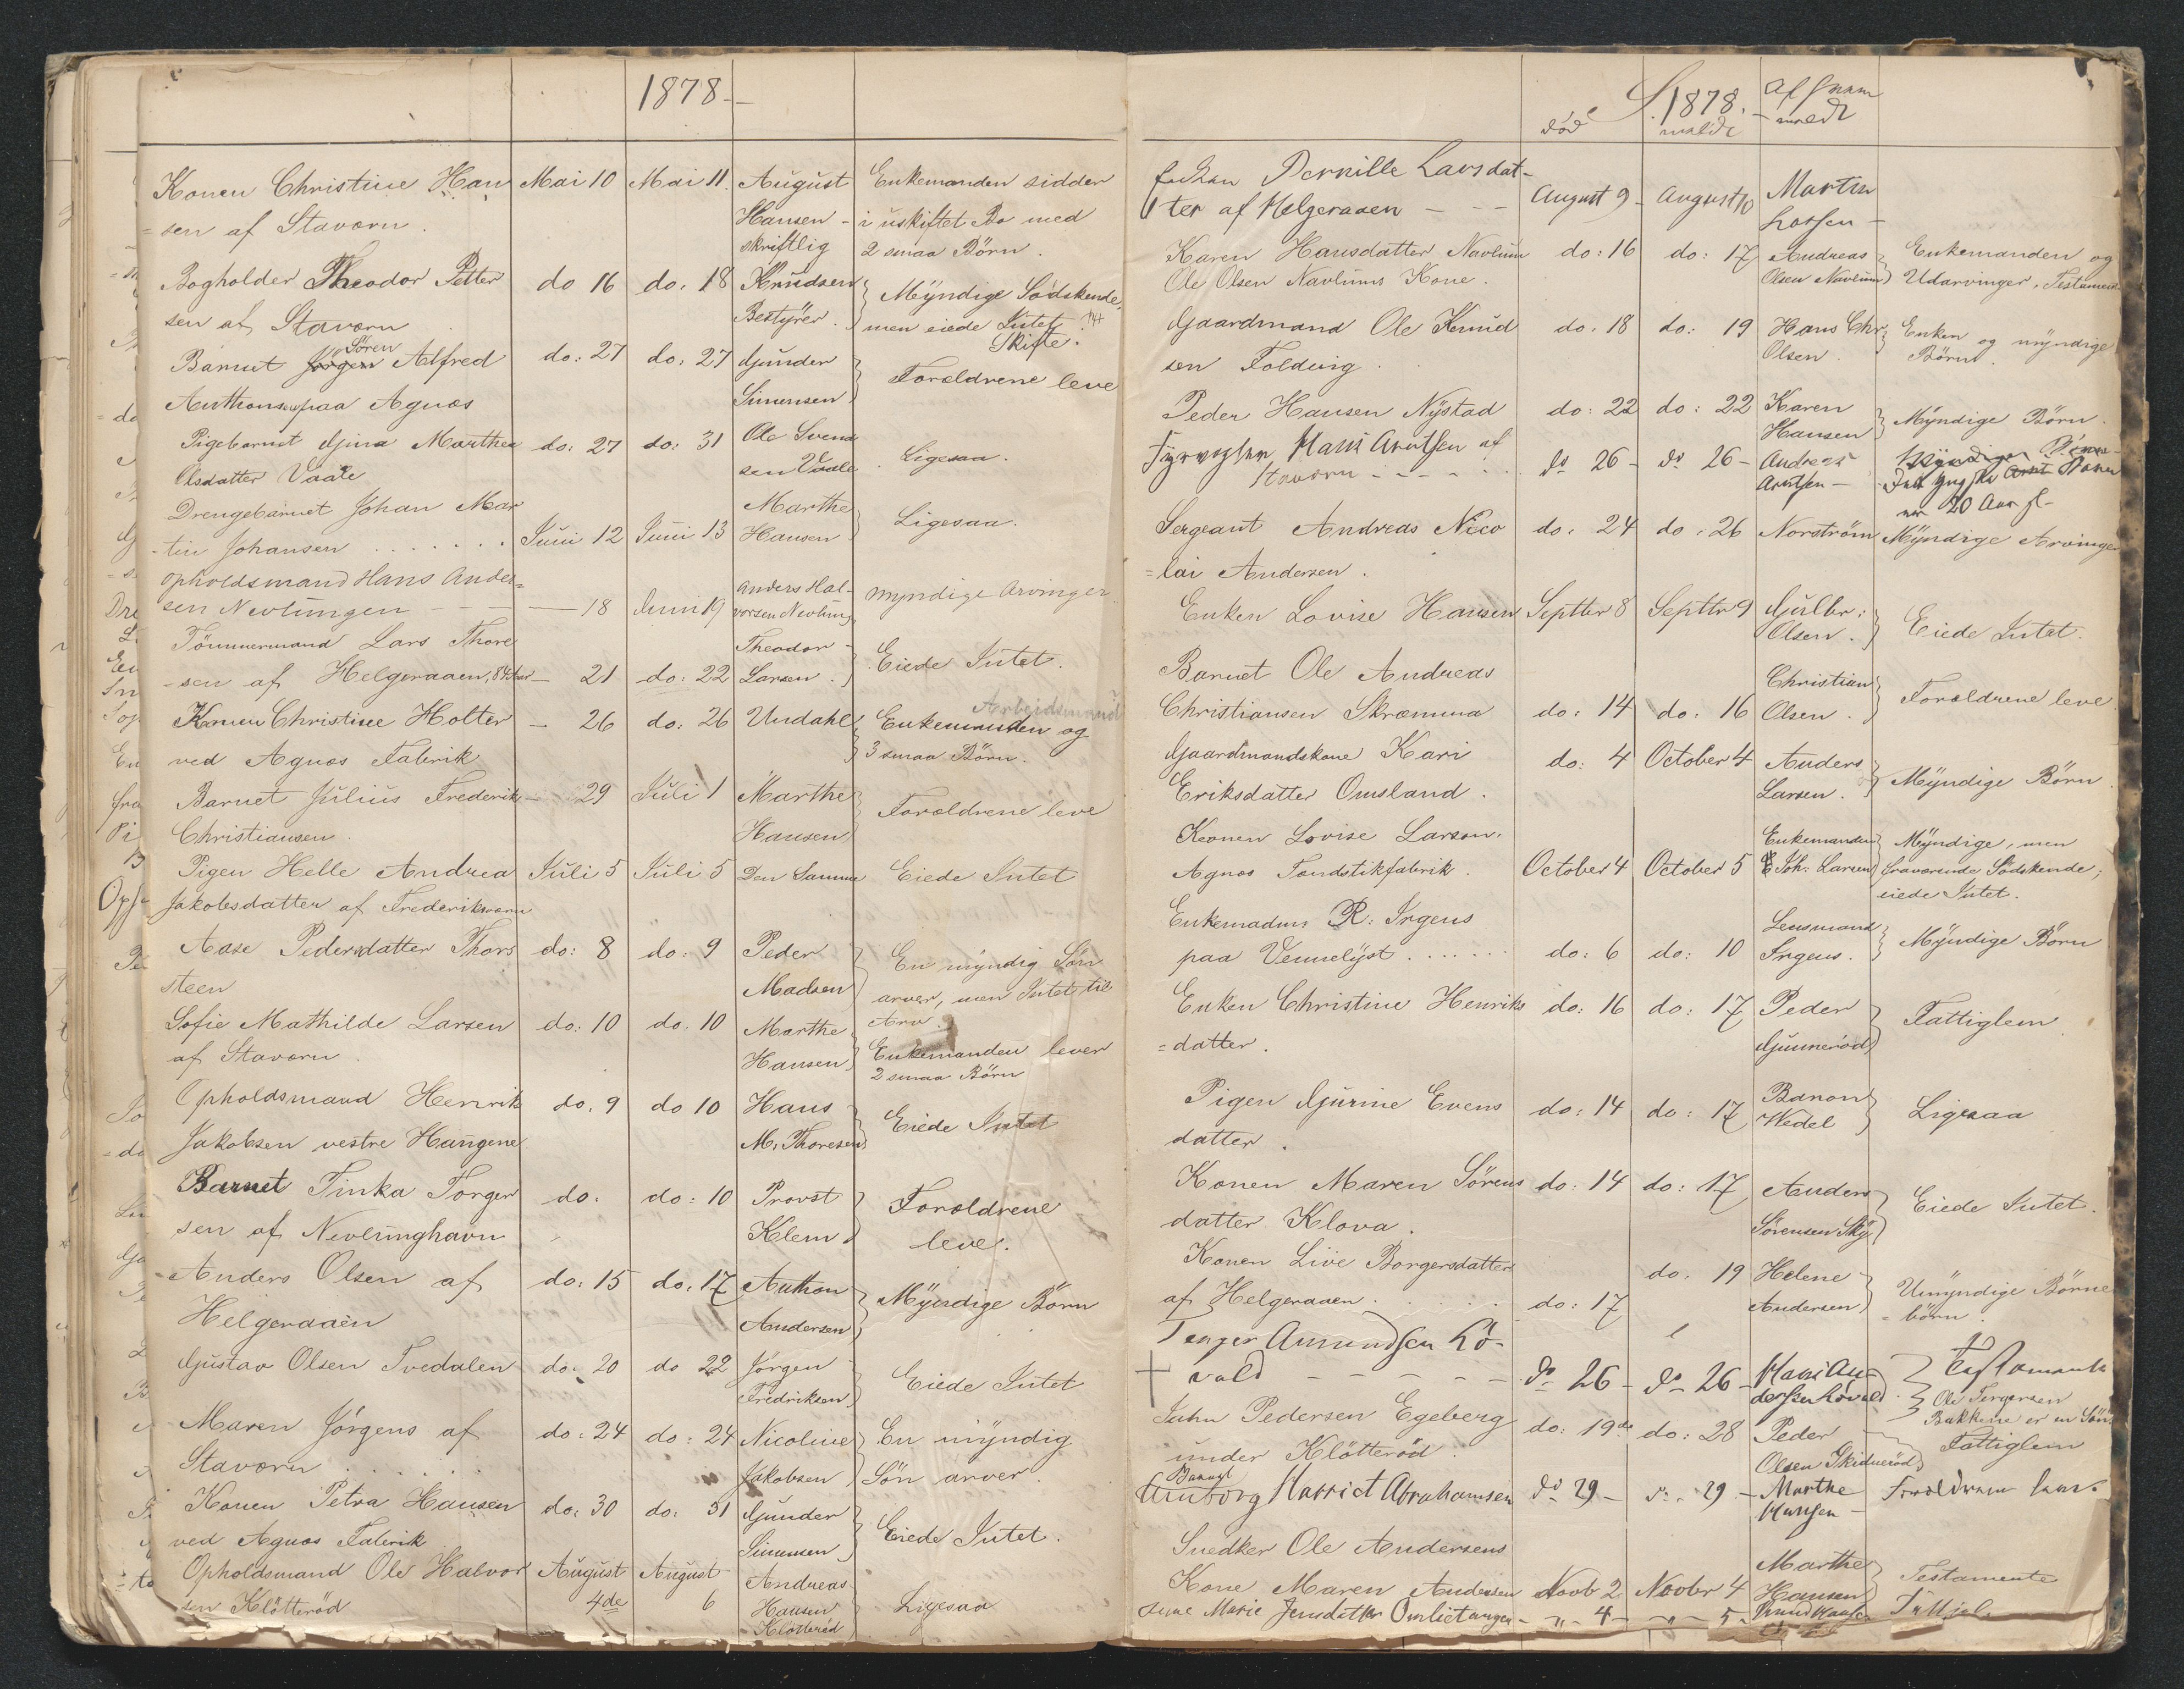 1878.
Konen Christine Han Mai 10 Mai 11. August Enkemanden sidder
sen af Stavern. Hansen i uskiftet Bo med
skriftlig 2 smaa Börn.
Bogholder Theodor Petter do 16 do. 18 Knudsen Myndige Södskende,
sen af Stavern Bestyrer. men eiede Intet.
Skifte.
Sören
Barnet Jörgen Alfred do: 27 do: 27 Gunder Forældrene leve
Anthonsen paa Agnes Simensen
Pigebarnet Gina Marthea do: 27 do: 31 Ole Svend Ligesaa.
Olsdatter Vaale sen Vaale
Drengebarnet Johan Mar Marthe
tin Johansen Juni 12 Juni 13 Hansen Ligesaa.
Opholdsmand Hans Ander= Anders Hal-
sen Nevlungen 18 Juni 19 vorsen Nevlung myndige Arvinger
Tömmermand Lars Thore Theodor
sen af Helgeraaen, 21 do: 22 Larsen. Eiede Intet.
Arbeidsmand
Konen Christine Holter 26 do: 26 Undahl Enkemanden og
ved Agnes Fabrik 3 smaa Börn.
Barnet Julius Frederik 29 Juli 1 Marthe Forældrene leve
Christiansen. Hansen
Pigen Helle Andrea Juli 5 Juli 5 Den Samme Eiede Intet
Jakobsdatter af Frederiksværn
Aase Pedersdatter Thors do: 8 do: 9 Peder En myndig Sön
steen Madsen arver, men Intet til
Arv.
Sofie Mathilde Larsen do: 10 do: 10 Marthe Enkemanden lever
af Stavern. Hansen 2 smaa Börn
Opholdsmand Henrik do. 9 do 10 Hans Eiede Intet
Jakobsen vestre Haugene M. Thoresen
Barnet Tinka Torger do. do: 10 Provst Forældrene
sen af Nevlunghavn Klem leve.
Anders Olsen af do: 15 do: 17 Anthon Myndige Börn
Helgeraaen Andersen
Gustav Olsen Tvedalen do: 20 do 22 Jörgen Eiede Intet
Fredriksen
Maren Jörgens af do: 24 do: 24 Nicoline En myndig
Stavern Jakobsen Sön arver.
Konen Petra Hansen do: 30 do: 31 Gunder Eiede Intet.
ved Agnes Fabrik Simensen
Opholdsmand Ole Halvor August August Andreas
sen Klötteröd 4de 6 Hansen Ligesaa
Klötteröd
1878.
död meldt af hvem meldt
Enken Pernille Larsdat-
ter af Helgeraaen August 9 August 10 Martin
Larsen
Karen Hansdatter Navlum do: 16 do: 17 Andreas Enkemanden og
Ole Olsen Navlums Kone. Olsen Navlum Udarvinger, Testament
Gaardmand Ole Knud do. 18 do: 19 Hans Chr. Enken og myndige
sen Foldvig. Olsen. Börn.
Peder Hansen Nystad do: 22 do: 22 Karen Myndige Börn.
Hansen
Hans Arntsen af do 26 do 26 Andreas Myndige Börn
Stavern Arntsen yngste Barn
er 20 Aar gl.
Sergeant Andreas Nico do: 24 do: 26 Norström Myndige Arvinger
lai Andersen.
Enken Lovise Hansen Septbr 8 Septbr 9 Gulbr: Eiede Intet.
Olsen.
Barnet Ole Andreas Christian
Christiansen Skræmma do: 14 do: 16 Olsen. Forældrene leve
Gaardmandskone Kari do: 4 October 4 Anders Myndige Börn
Eriksdatter Omsland. Larsen.
Konen Lovise Larsen. Enkemanden Myndige, men
Agnes Tændstikfabrik. October 4 October 5 Joh: Larsen fraværende Södskende,
eiede Intet.
Enkemadm R: Irgens Lensmand
paa Vennelyst do: 6 do: 10 Irgens. Myndige Börn
Enken Christine Henriks do: 16 do: 17 Peder Fattiglem
datter. Gunneröd
Pigen Gurine Evens do: 14 do: 17 Baron Ligesaa
datter. Wedel
Konen Maren Sörens do: 14 do: 17 Anders Eiede Intet.
datter Klova. Sörensen Sky
Konen Live Borgersdatter do. 19 Helene Umyndige Börne
af Helgeraaen do: 17 Andersen börn.
Amundsen Lö-
vald do 26 do 26 Hans An- Testamente
dersen Lövald Ole Torgersen
Bakkene er en Sön
John Pedersen Egeberg do: 19de do: 28 Peder Fattiglem
under Klötteröd. Olsen Skideröd
Barnet
Harriet Abrahamsen do 29 29 Marthe Forældrene lever
Hansen
Snedker Ole Andersens Marthe
Kone Maren Andersen Novb 2 Novbr 4 Hansen Testamente
Marie Jensdatter Omlietangen 4 5 Knud